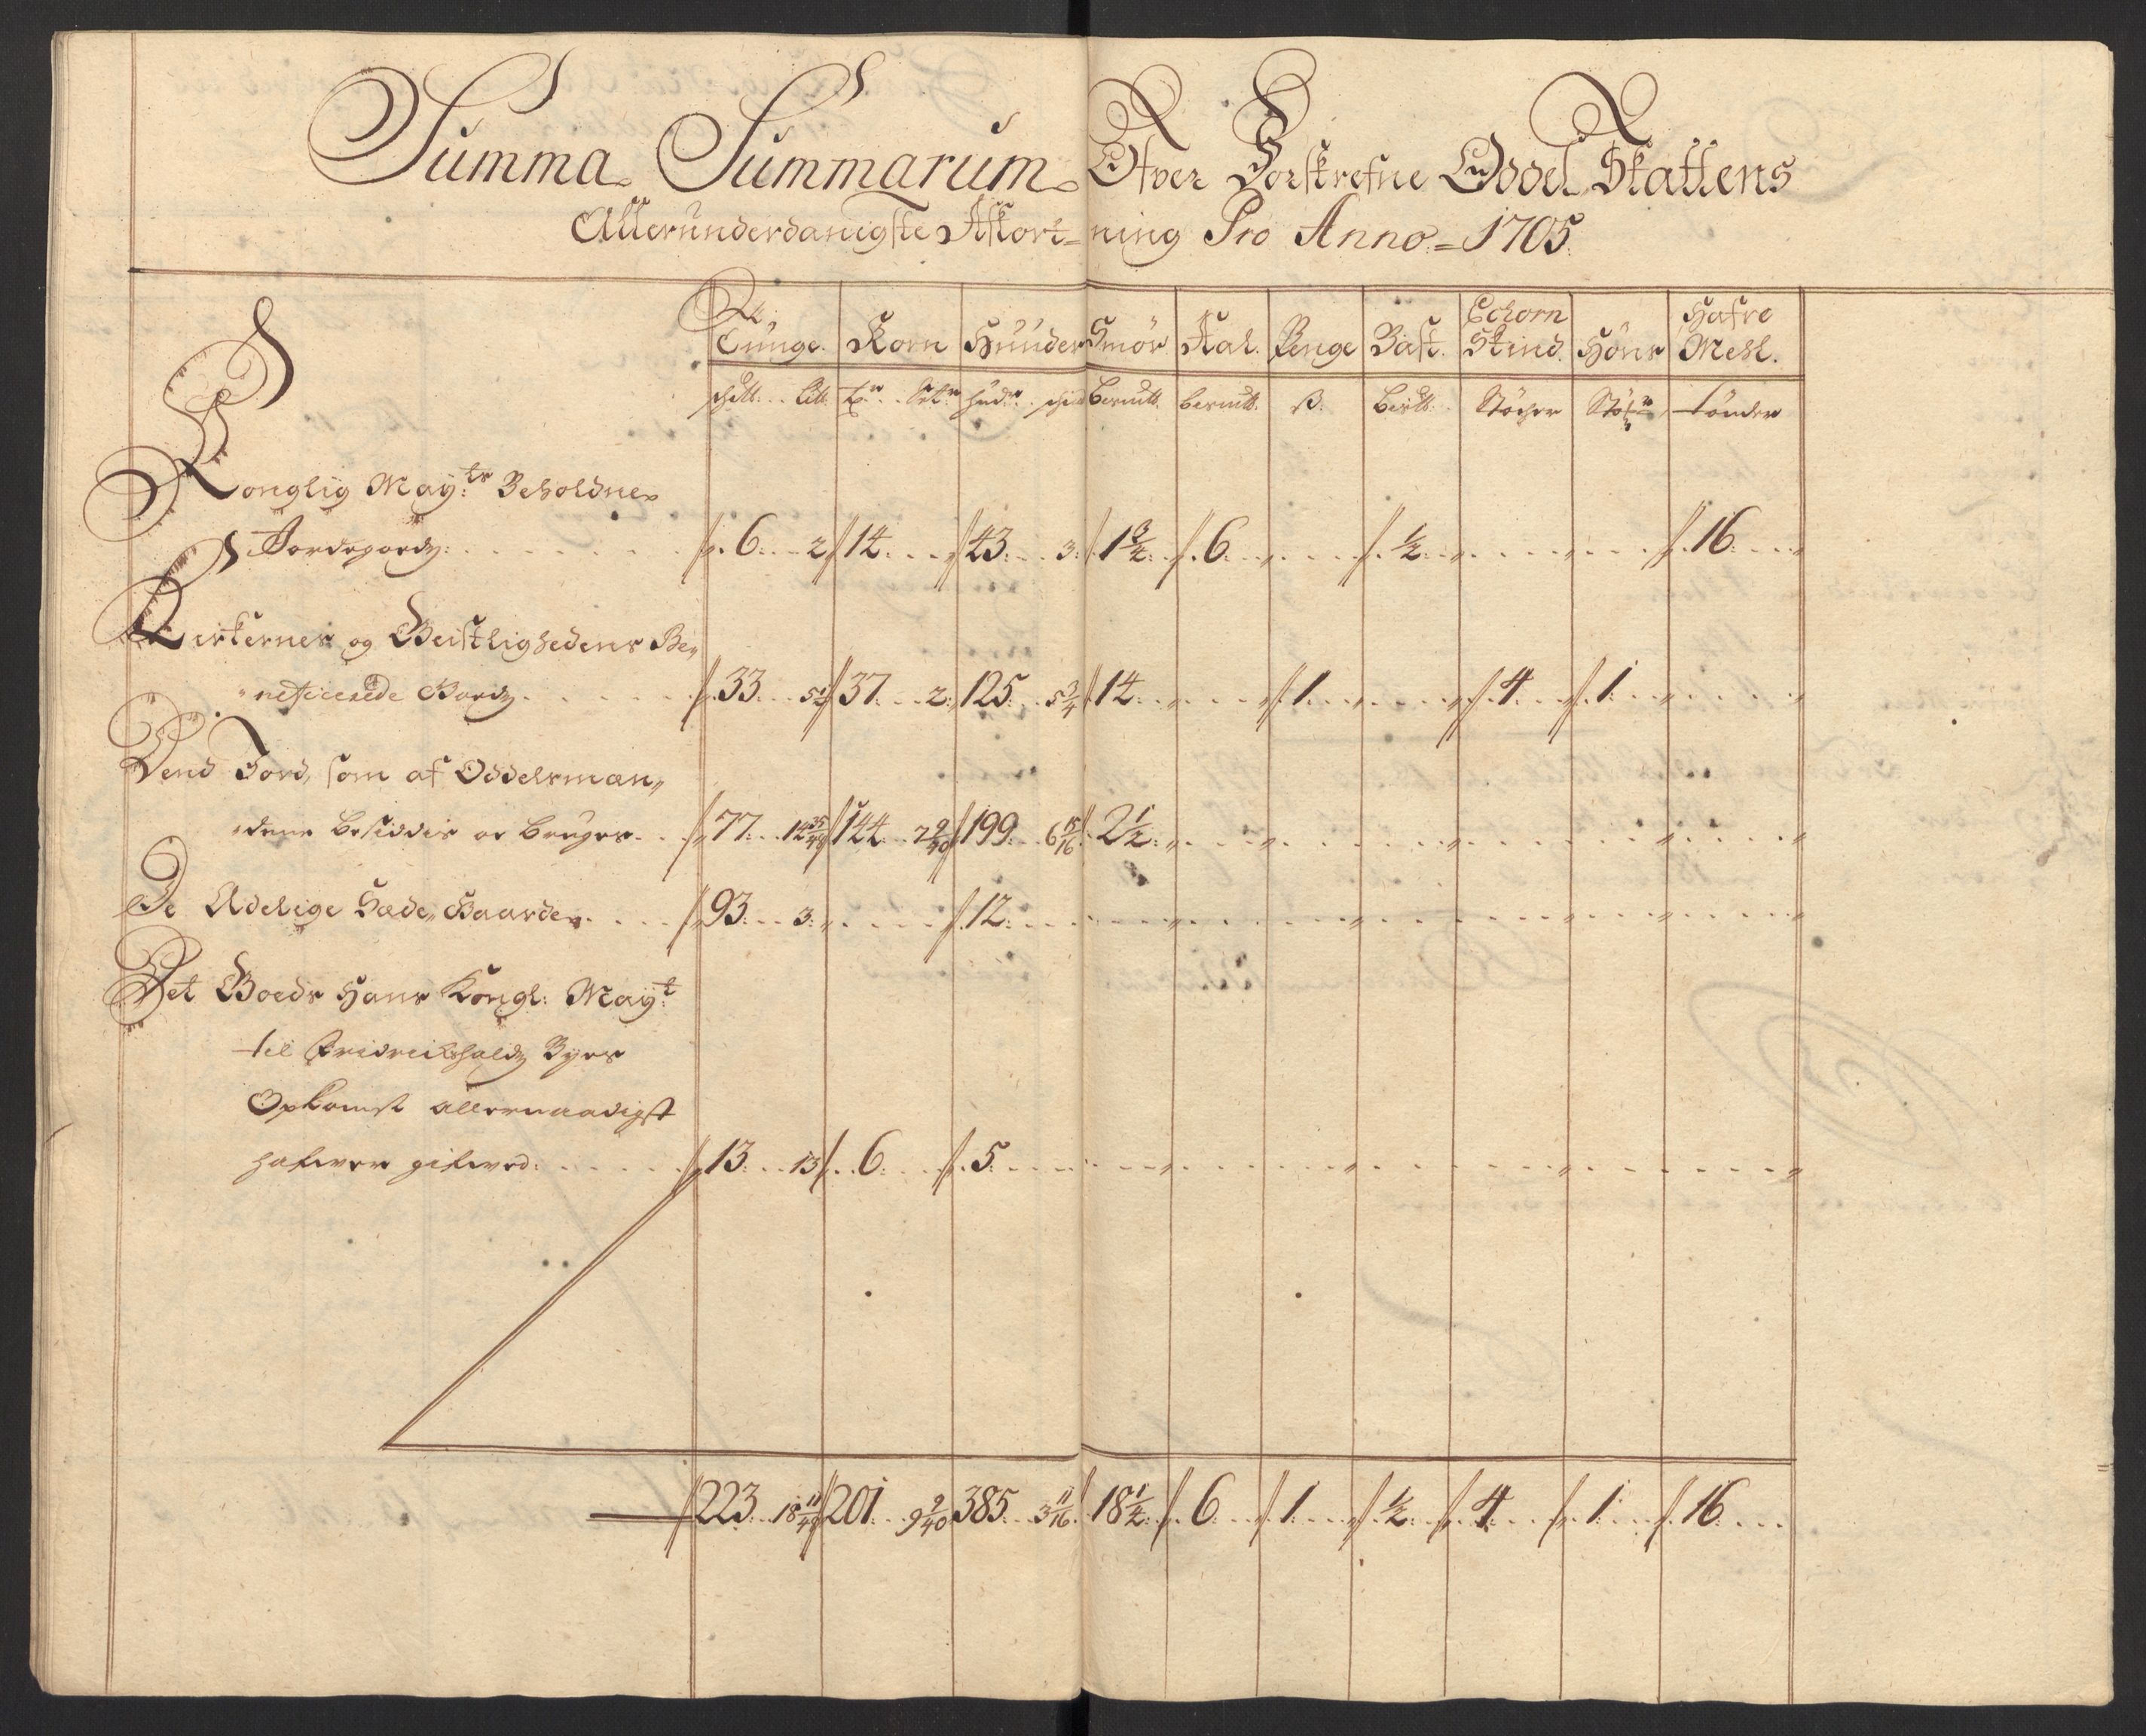 Summa Summarum Ofver Forskrefne Oddel Skattens
Allerunderdanigste Afkort=ning Pro Anno=1705.
Tunge. Korn Hunder Smör Aal. Penge Bast. Echorn Skind. Höns Hafre Mehl.
schll: Lll: Tr. Setr hudr: schind Bermll. bermll. ß. Berll: Stöcher Stör tönder
Konglig Mayts Beholdne
Jordegods: 6: 2 14 43: 3: 1 3/4: 6: 1/2 16:
Kirkernes og Geistlighedens Be„
„neficerede Gods. 33: 5 1/2 37. 2: 125: 5 3/4 14 1. 4. 1.
Dend Jord, som af Oddelsmæn„
„dene besiddis og bruges. 77. 14 35/48 144. 7 9/40 199. 6 15/16 2 1/2:
De Adelige Sæde„Gaarde. 93. 3: 12:
Det Goeds Hans Kongl: Mayt:
til Fridrichshalds Byes
Opkomst allernaadigst
hafver gifved: 13: 13 6: 5:
223. 18 11/48 201. 9 9/40 385. 3 11/16 18 1/4: 6 1. 1/2: 4. 1. 16.